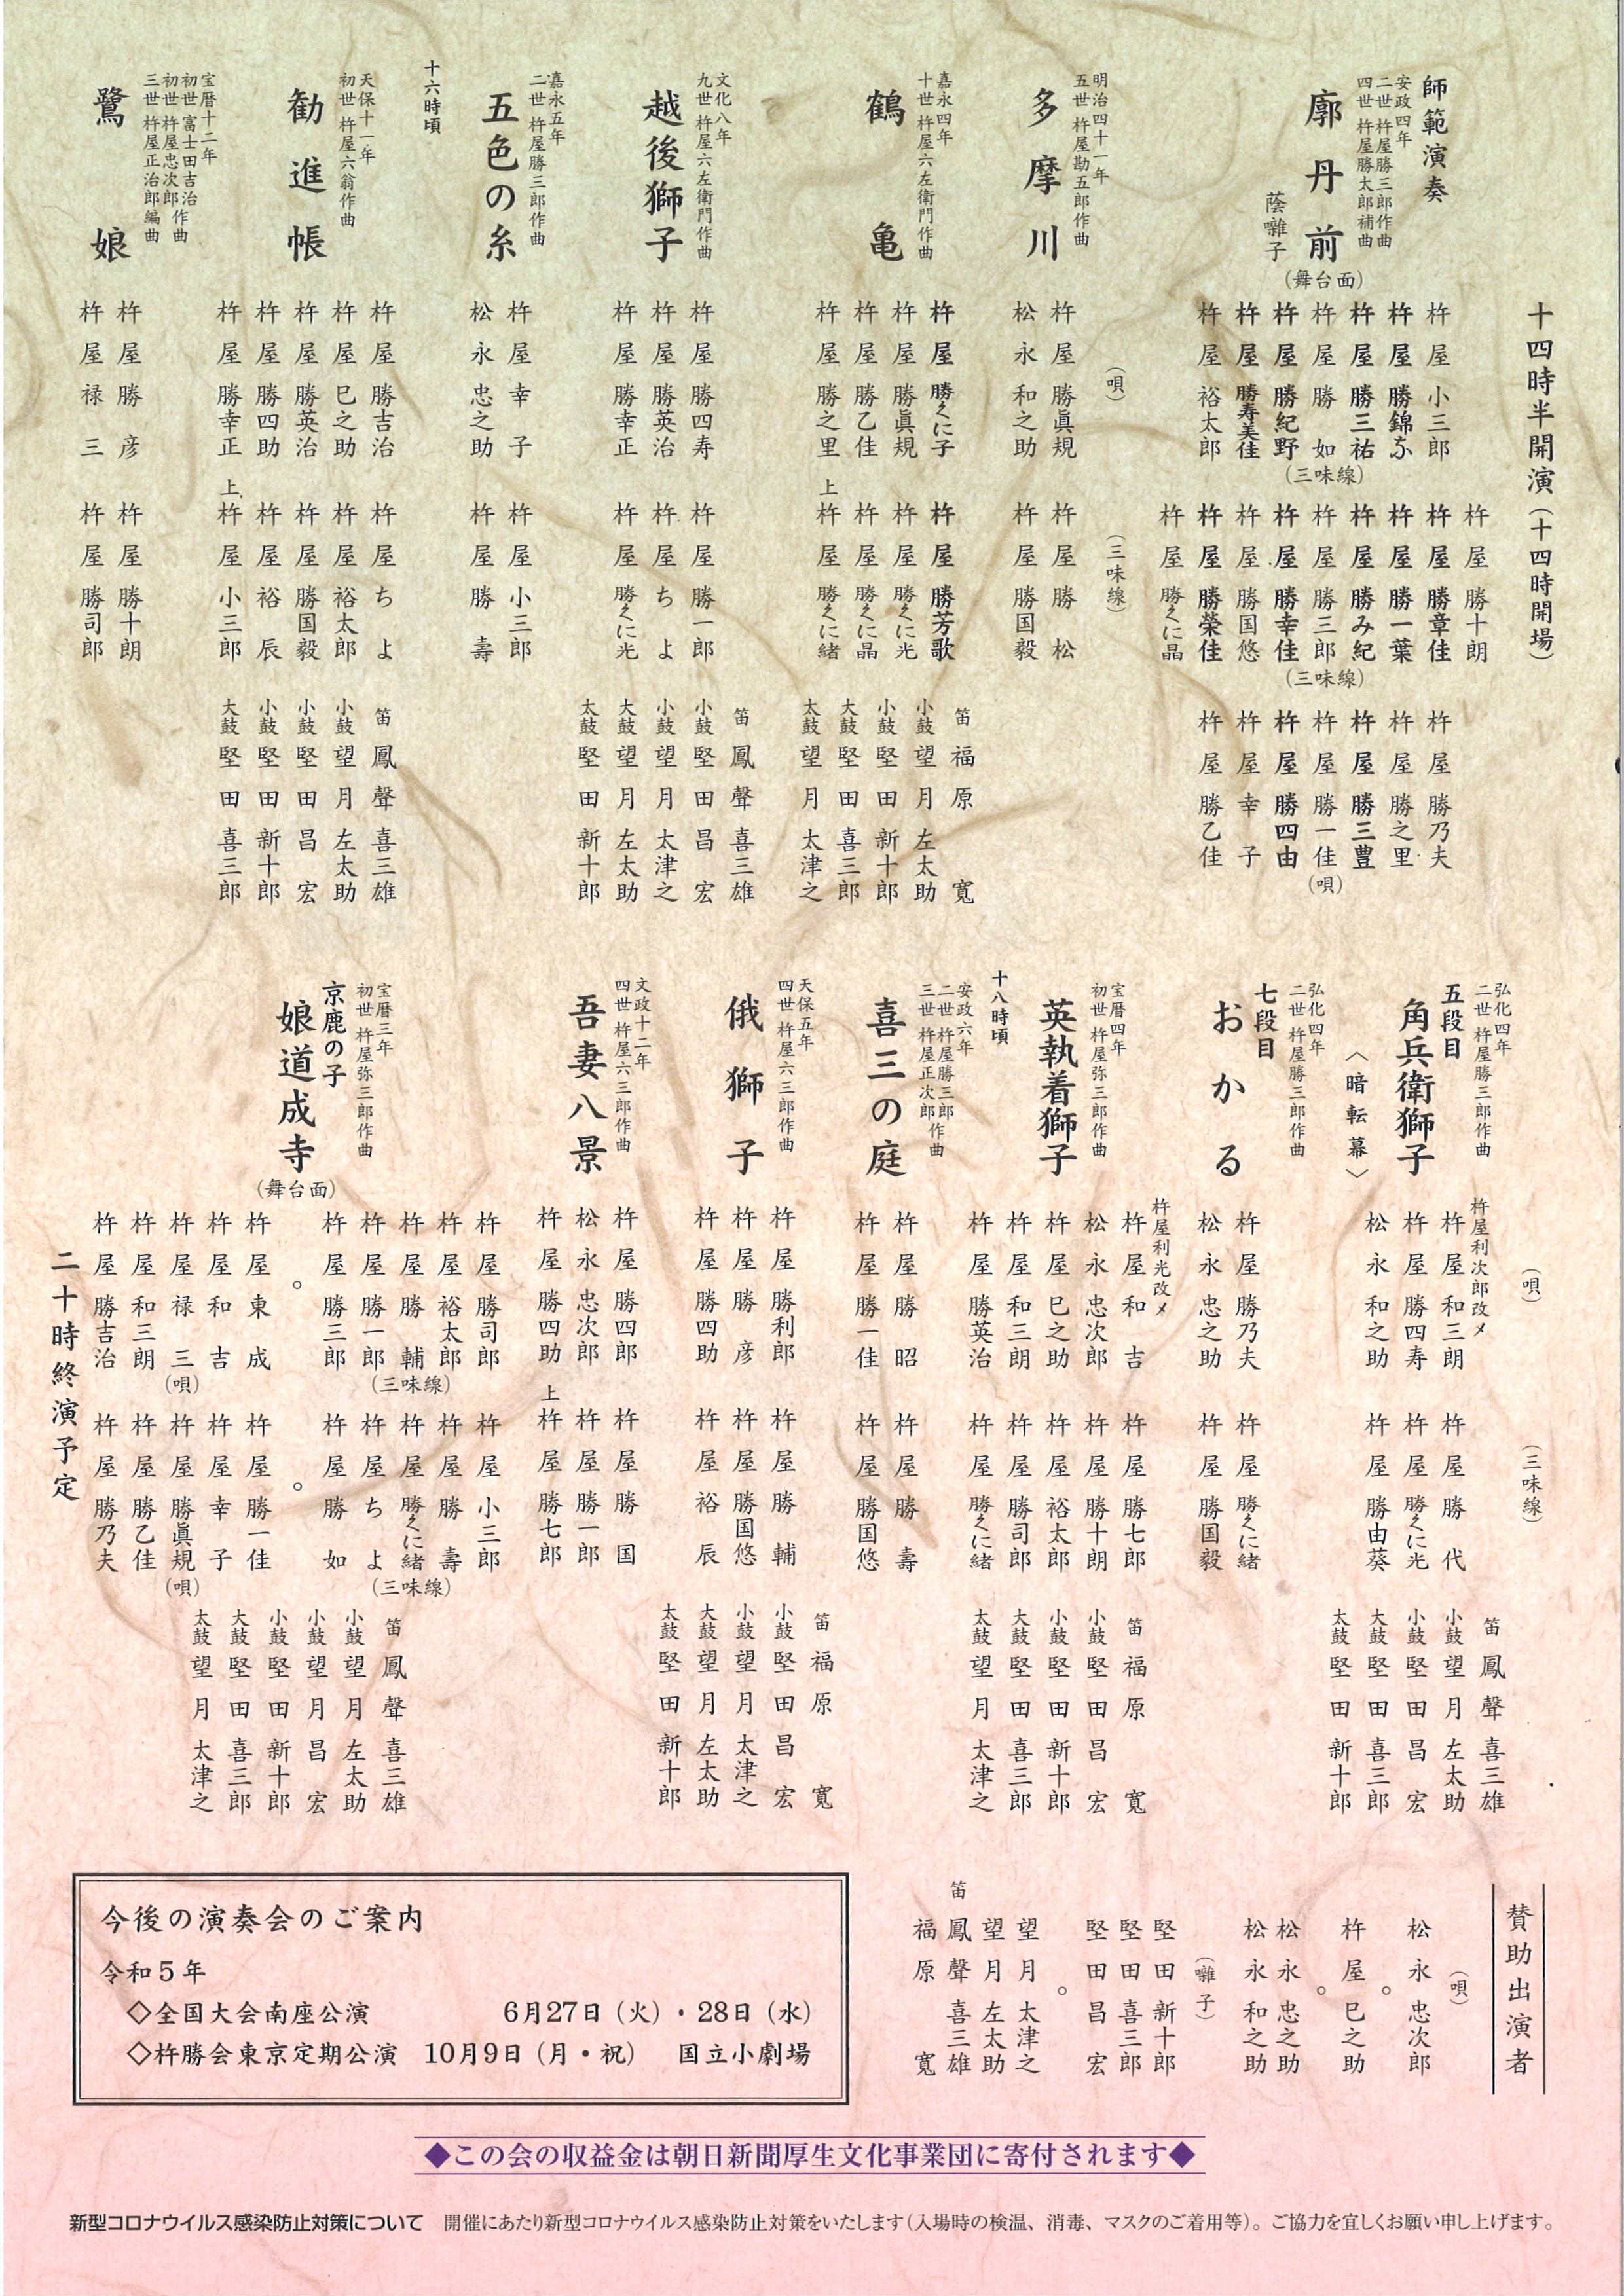 十四時半開演（十四時開場）
師範演奏
安政四年
二世 杵屋勝三郎作曲
四世 杵屋勝太郎補曲
廓丹前
蔭囃子
（舞台面）
杵屋小三郎
杵屋勝錦ふ
杵屋勝三祐
杵屋勝如
杵屋勝紀野
杵屋勝寿美佳
杵屋裕太郎
（三味線）
杵屋勝十朗
杵屋勝章佳
杵屋勝一葉
杵屋勝み紀
杵屋勝三郎
杵屋勝幸佳
杵屋勝国悠
杵屋勝榮佳
杵屋勝くに晶
（三味線）
杵屋勝乃夫
杵屋勝之里
杵屋勝三豊
杵屋勝一佳
杵屋勝四由
杵屋幸子
杵屋勝乙佳
（唄）
明治四十一年
五世 杵屋勘五郎作曲
多摩川
（唄）
杵屋勝眞規
松永和之助
（三味線）
杵屋勝松
杵屋勝国毅
嘉永四年
十世 杵屋六左衛門作曲
鶴亀
杵屋勝くに子
杵屋勝眞規
杵屋勝乙佳
杵屋勝之里
杵屋勝芳歌
杵屋勝くに光
杵屋勝くに晶
上 杵屋勝くに緒
笛 福原寛
小鼓 望月左太助
小鼓 堅田新十郎
大鼓 堅田喜三郎
太鼓 望月太津之
文化八年
九世 杵屋六左衛門作曲
越後獅子
杵屋勝四寿
杵屋勝英治
杵屋勝幸正
杵屋勝一郎
杵屋ちよ
杵屋勝くに光
笛 鳳聲喜三雄
小鼓 堅田昌宏
小鼓 望月太津之
大鼓 望月左太助
太鼓 堅田新十郎
嘉永五年
二世 杵屋勝三郎作曲
五色の糸
杵屋幸子
松永忠之助
杵屋小三郎
杵屋勝壽
十六時頃
天保十一年
初世 杵屋六翁作曲
勧進帳
杵屋勝吉治
杵屋巳之助
杵屋勝英治
杵屋勝四助
杵屋勝幸正
杵屋ちよ
杵屋裕太郎
杵屋勝国毅
杵屋裕辰
上 杵屋小三郎
笛 鳳聲喜三雄
小鼓 望月左太助
小鼓 堅田昌宏
小鼓 堅田新十郎
大鼓 堅田喜三郎
宝暦十二年
初世 富士田吉治
初世 杵屋忠次郎 作曲
三世 杵屋正治郎編曲
鷺娘
杵屋勝彦
杵屋禄三
杵屋勝十朗
杵屋勝司郎
弘化四年
二世 杵屋勝三郎作曲
五段目
角兵衛獅子
〈暗転幕〉
（唄）
杵屋利次郎改メ
杵屋和三朗
杵屋勝四寿
松永和之助
（三味線）
杵屋勝代
杵屋勝くに光
杵屋勝由葵
笛 鳳聲喜三雄
小鼓 望月左太助
小鼓 堅田昌宏
大鼓 堅田喜三郎
太鼓 堅田新十郎
弘化四年
二世 杵屋勝三郎作曲
七段目
おかる
杵屋勝乃夫
松永忠之助
杵屋勝くに緒
杵屋勝国毅
宝暦四年
初世 杵屋弥三郎作曲
英執着獅子
杵屋利光改メ
杵屋和吉
松永忠次郎
杵屋巳之助
杵屋和三朗
杵屋勝英治
杵屋勝七郎
杵屋勝十朗
杵屋裕太郎
杵屋勝司郎
杵屋勝くに緒
笛 福原寛
小鼓 堅田昌宏
小鼓 堅田新十郎
大鼓 堅田喜三郎
太鼓 望月太津之
十八時頃
安政六年
二世 杵屋勝三郎
三世 杵屋正次郎 作曲
喜三の庭
杵屋勝昭
杵屋勝一佳
杵屋勝壽
杵屋勝国悠
天保五年
四世 杵屋六三郎作曲
俄獅子
杵屋勝利郎
杵屋勝彦
杵屋勝四助
杵屋勝輔
杵屋勝国悠
杵屋裕辰
笛 福原寛
小鼓 堅田昌宏
小鼓 望月太津之
大鼓 望月左太助
太鼓 堅田新十郎
文政十二年
四世 杵屋六三郎作曲
吾妻八景
杵屋勝四郎
松永忠次郎
杵屋勝四助
杵屋勝国
杵屋勝一郎
上 杵屋勝七郎
宝暦三年
初世 杵屋弥三郎作曲
京鹿の子
娘道成寺
（舞台面）
杵屋勝司郎
杵屋裕太郎
杵屋勝輔
杵屋勝一郎
杵屋勝三郎
（三味線）
。
杵屋東成
杵屋和吉
杵屋禄三
杵屋和三朗
杵屋勝吉治
（唄）
杵屋小三郎
杵屋勝壽
杵屋勝くに緒
杵屋ちよ
杵屋勝如
（三味線）
。
杵屋勝一佳
杵屋幸子
杵屋勝眞規
杵屋勝乙佳
杵屋勝乃夫
（唄）
笛 鳳聲喜三雄
小鼓 望月左太助
小鼓 望月昌宏
小鼓 堅田新十郎
大鼓 堅田喜三郎
太鼓 望月太津之
二十時終演予定
賛助出演者
（唄）
松永忠次郎
。
杵屋巳之助
。
松永忠之助
松永和之助
（囃子）
堅田新十郎
堅田喜三郎
堅田昌宏
。
望月太津之
望月左太助
笛 鳳聲喜三雄
福原寛
今後の演奏会のご案内
令和5年
◇全国大会南座公演 6月27日（火）・28日（水）
◇杵勝会東京定期公演 10月9日（月・祝） 国立小劇場
◆この会の収益金は朝日新聞厚生文化事業団に寄付されます◆
新型コロナウイルス感染防止対策について 開催にあたり新型コロナウイルス感染防止対策をいたします（入場時の検温、消毒、マスクのご着用等）。ご協力を宜しくお願い申し上げます。